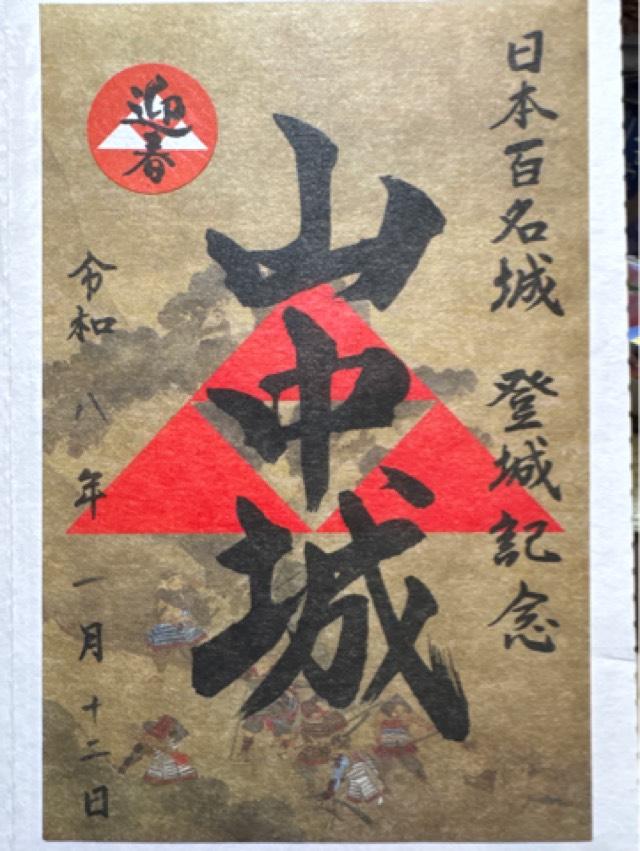 日本百名城 登城記念
山中城
迎春
令和八年一月十二日